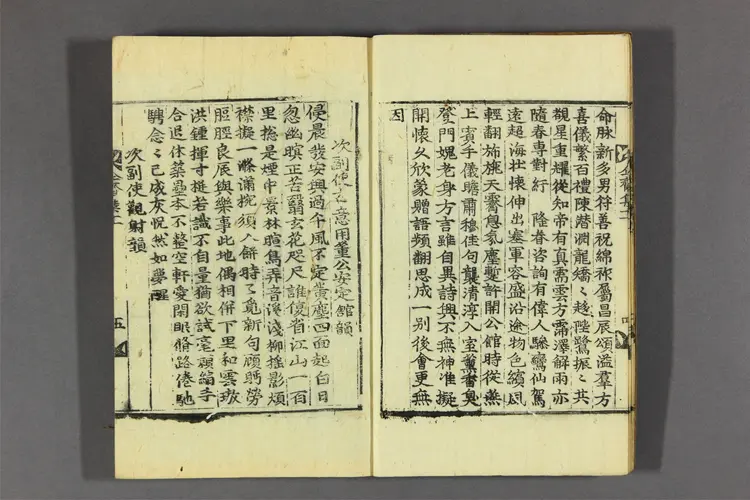 命脉新多男符善祝綿祚屬昌辰頌溢羣方
喜儀繁百禮陳潜淵龍矯〻趍陛鷺振〻共
觀星重耀從知帝有真需雲方霈澤解雨亦
隨春專對紆 隆眷咨詢有偉人驂鸞仙駕
遠超海壮懷伸出塞軍容盛沿途物色繽風
輕翻斾旎天霽息氛塵蹔許開公館時從燕
上賓手儀瞻肅穆佳句襲清淳入室薰香奧
登門媿老身方言雖自異詩興不無神准擬
開懷久欣蒙贈語頻翻思成一别後會更無
因
次副使之意用董公安定館韻
侵晨發安興過午風不定黄塵四面起白日
忽幽暝正苦翳玄花咫尺誰復省江山一百
里捴是煙中景林暄鳥弄音溪淺柳揺影煩
襟擬一滌滿椀須入餅時了覔新句顧眄勞
脛脛良辰與樂事此地偶相併下里和雲璈
洪鍾揮寸挺若識不自量猶欲試亳穎縮手
合退休築臺本不整空軒愛閑眠脩路倦馳
騁念〻已成灰怳然如夢醒
次副使觀射韻
五